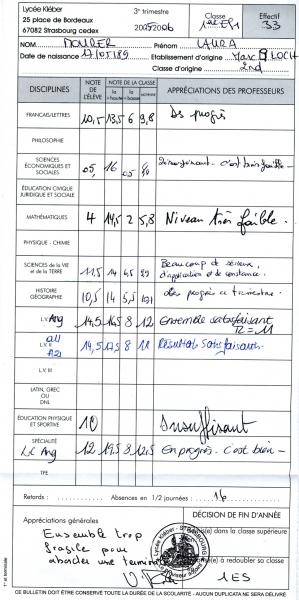 Lycée Kléber
25 place de Bordeaux
67082 Strasbourg cedex
3e trimestre
2005/2006
Classe
1re ES1
Effectif
33
NOM
Prénom LAURA
Date de naissance 17/05/89
Etablissement d'origine Marc BLOCH
Classe d'origine 2nd
DISCIPLINES
NOTE DE L'ÉLÈVE
NOTE DE LA CLASSE
la + haute
la + basse
moyenne
APPRÉCIATIONS DES PROFESSEURS
FRANÇAIS/LETTRES 10,5 13,5 6 9,8 Des progrès
PHILOSOPHIE
SCIENCES ÉCONOMIQUES ET SOCIALES 05, 16 05 c'est très faible
ÉDUCATION CIVIQUE JURIDIQUE ET SOCIALE
MATHÉMATIQUES 4 14,5 2 5,8 Niveau très faible.
PHYSIQUE - CHIMIE
SCIENCES DE LA VIE et de la TERRE 11,5 14 4,5 Beaucoup de sérieux,
d'application et de constance.
HISTOIRE GÉOGRAPHIE 10,5 14 5,5 Des progrès ce trimestre.
L.V. Ang 14,5 16,5 8 12 Ensemble satisfaisant
TR = 11
L.V. all 14,5 17,5 8 11 Résultats satisfaisants.
L.V. III
LATIN, GREC OU DNL
ÉDUCATION PHYSIQUE ET SPORTIVE 10 Insuffisant
SPÉCIALITÉ
Ang 12 19,5 8 12,5 En progrès. c'est bien -
TPE
Retards : Absences en 1/2 journées : 16
Appréciations générales
Ensemble trop
fragile pour
aborder une terminale
DÉCISION DE FIN D'ANNÉE
dans la classe supérieure
à redoubler sa classe
1ES
Lycée Kléber - STRASBOURG
1re et terminale
CE BULLETIN DOIT ÊTRE CONSERVÉ TOUTE LA DURÉE DE LA SCOLARITÉ - AUCUN DUPLICATA NE SERA DÉLIVRÉ